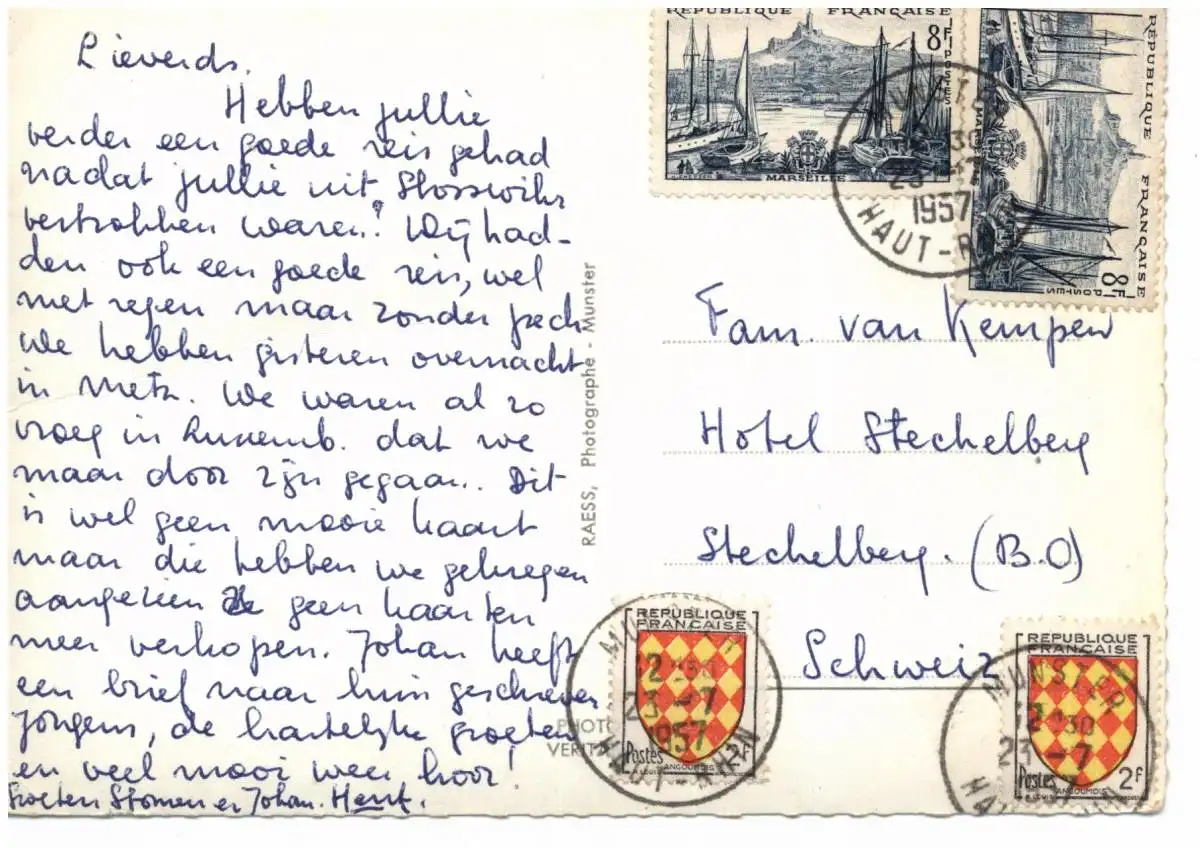 Lieverds.
Hebben jullie
verder een goede reis gehad
nadat jullie uit Stosswihr
vertrokken waren? Wij had-
den ook een goede reis, wel
met regen maar zonder pech
We hebben gisteren overnacht
in Metz. We waren al zo
vroeg in Luxemb. dat we
maar door zijn gegaan. Dit
is wel geen mooie kaart
maar die hebben we gekregen
aangezien ze geen kaarten
meer verkopen. Johan heeft
een brief naar huis geschreven
Jongens, de hartelijke groeten
en veel mooi weer hoor!
Groeten Stomen en Johan.
RAESS, Photographe - Munster
PHOTO
VERITA
REPUBLIQUE FRANÇAISE
8F
POSTES
MARSEILLE
REPUBLIQUE FRANÇAISE
8F
POSTES
MARSEILLE
MUNSTER
23
1957
HAUT-RHIN
Fam. van Kempen
Hotel Stechelberg
Stechelberg. (B.O)
Schweiz
REPUBLIQUE
FRANÇAISE
Postes 2F
ANGOUMOIS
MUNSTER
12 H30
23-7
1957
HAUT-RHIN
REPUBLIQUE
FRANÇAISE
Postes 2F
ANGOUMOIS
MUNSTER
12 H30
23-7